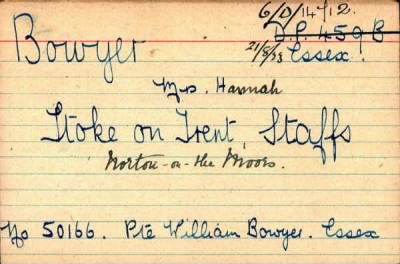 6/D/14712.
Bowyer
D.P. 459 B
21/8/23 Essex.
Mrs. Hannah
Stoke on Trent, Staffs
Norton-on-the Moors.
No 50166. Pte William Bowyer. Essex